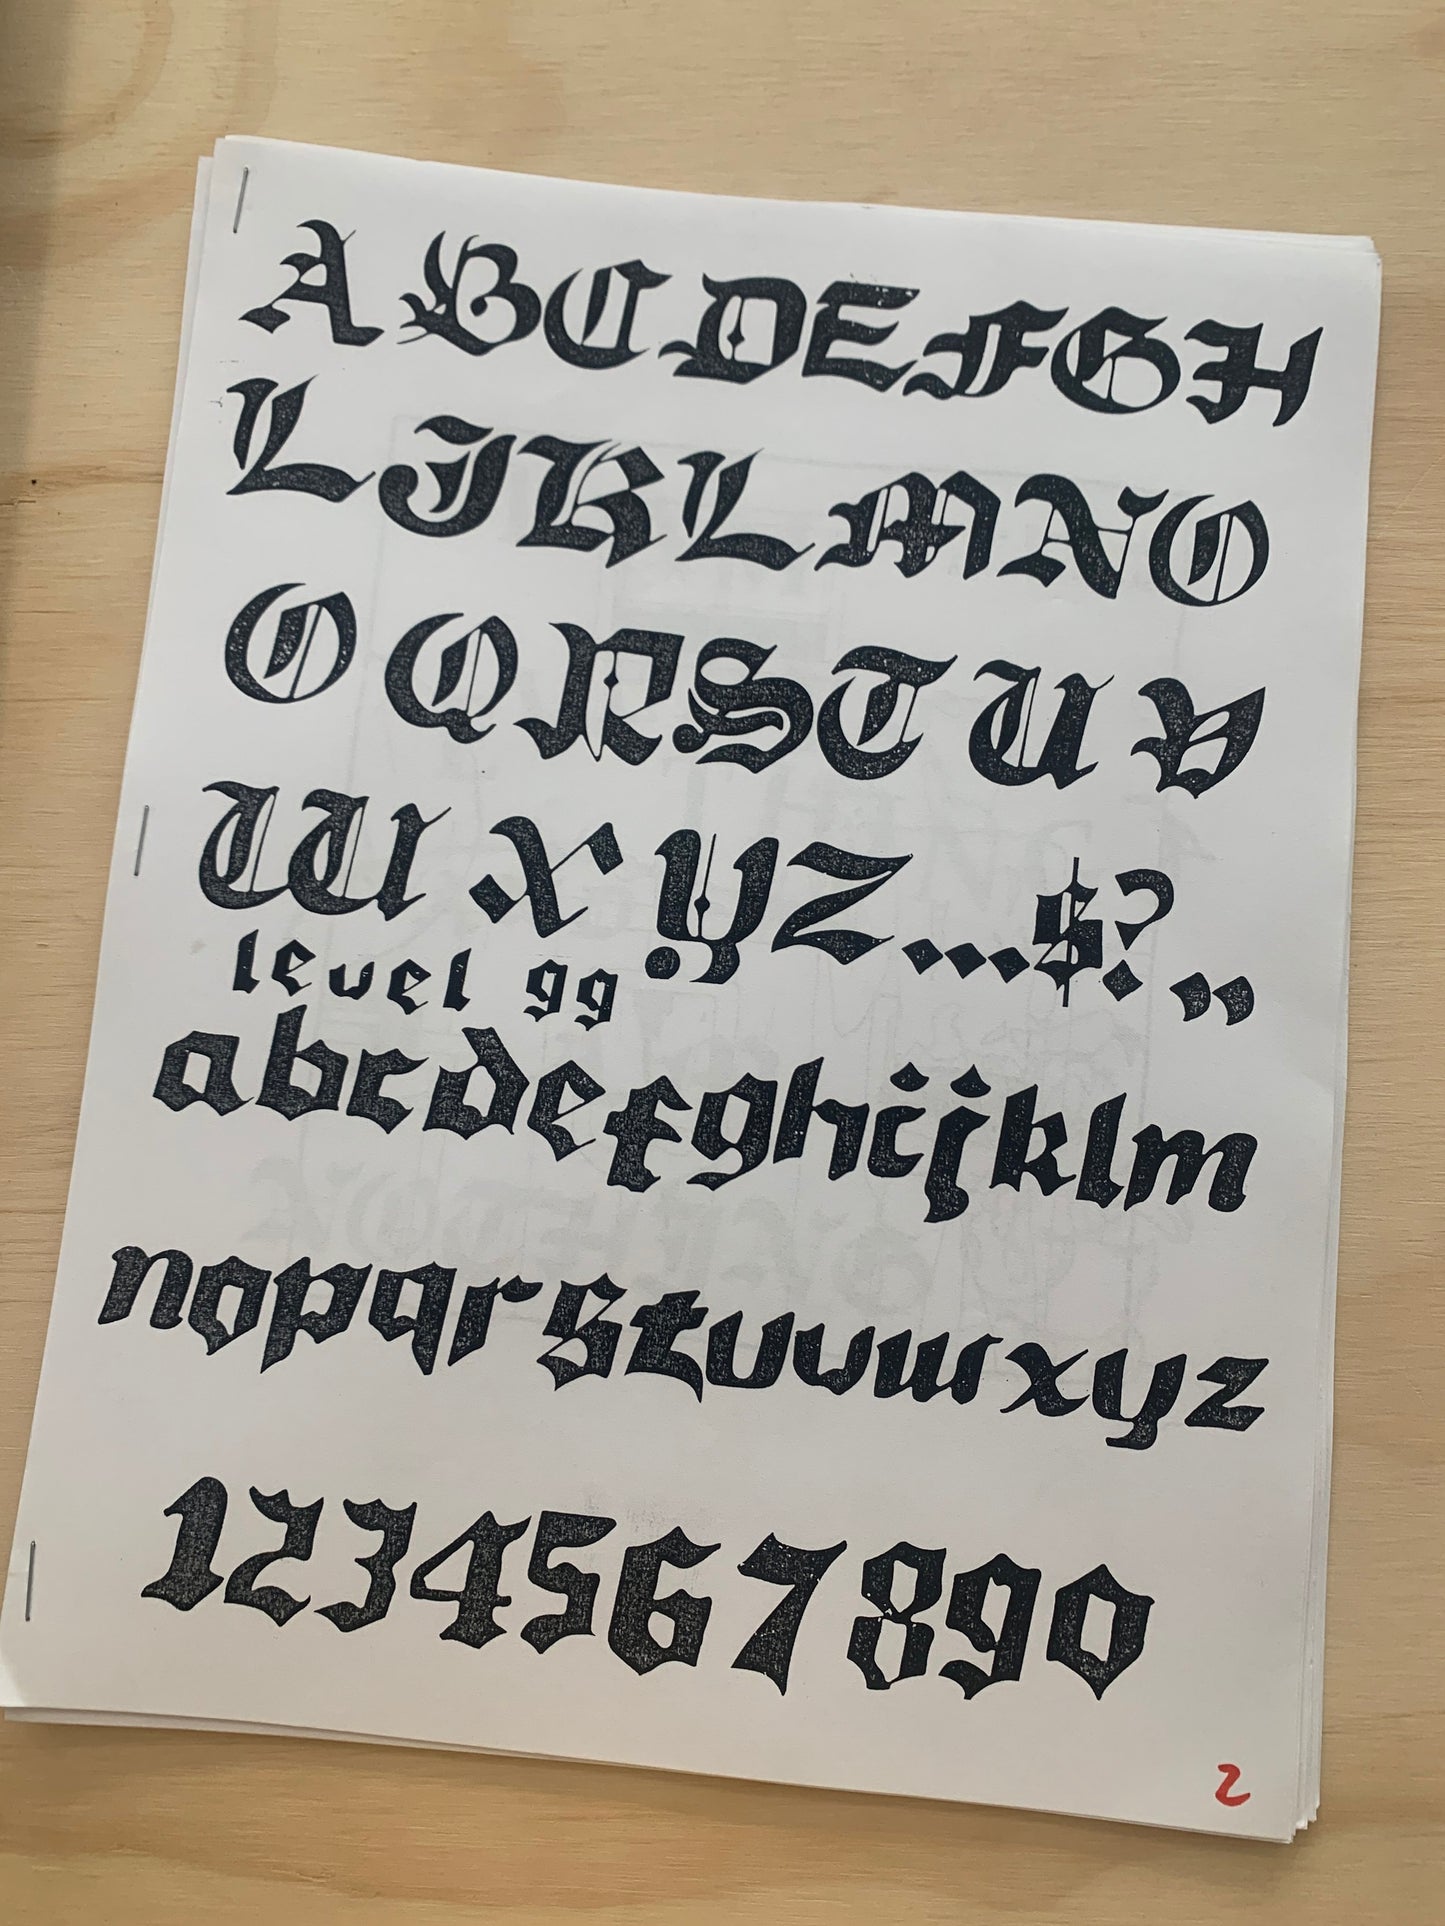 ABCDEFGH
LJKLMNO
OQRSTUV
WXYZ...$?,,
level 99
abcdefghijklm
nopqrstuvwxyz
1234567890
2